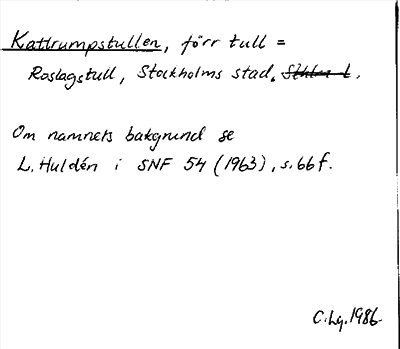 Kattrumpstullen, förr tull =
Roslagstull, Stockholms stad. Sthlms l.
Om namnets bakgrund se
L. Huldén i SNF 54 (1963), s. 66 f.
C. Lg. 1986